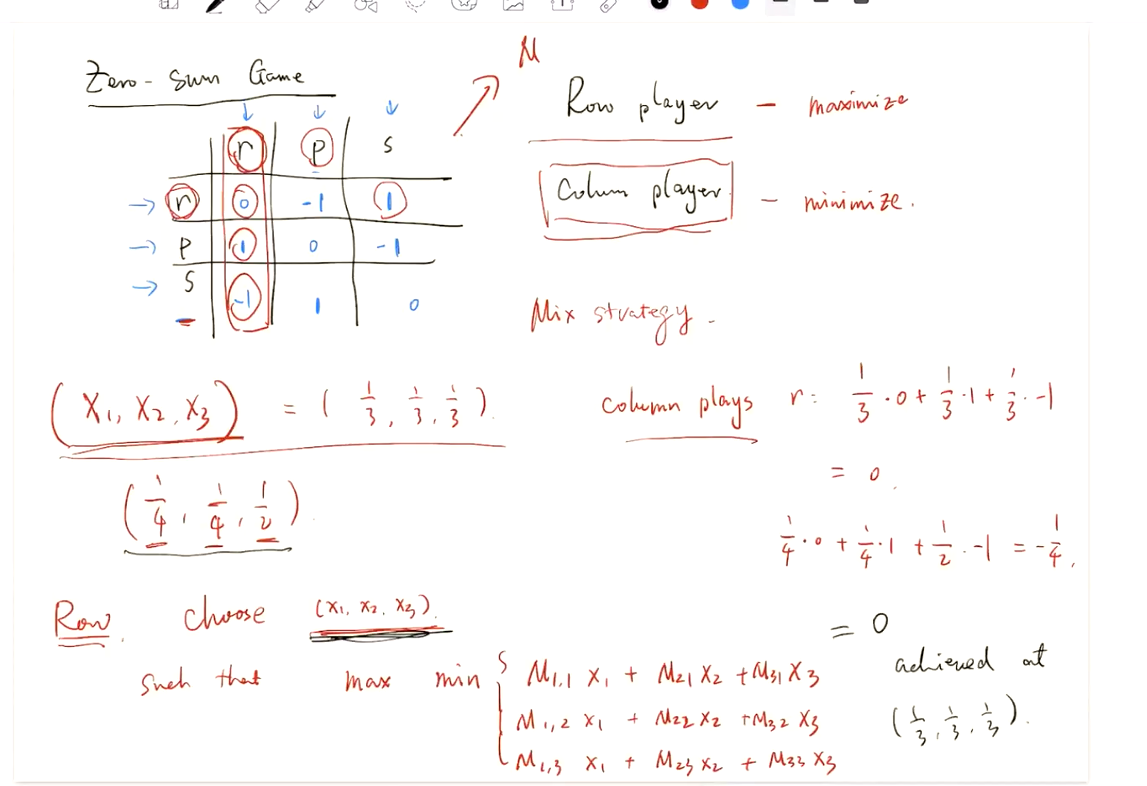 Zero-Sum Game
M
Row player - maximize
Column player - minimize.
r p s
r 0 -1 1
p 1 0 -1
s -1 1 0
Mix strategy -
(x1, x2, x3) = (1/3, 1/3, 1/3).
column plays r: 1/3 · 0 + 1/3 · 1 + 1/3 · -1
= 0.
(1/4, 1/4, 1/2).
1/4 · 0 + 1/4 · 1 + 1/2 · -1 = -1/4,
Row. choose (x1, x2, x3).
such that max min { M1,1 x1 + M21 x2 + M31 x3
M1,2 x1 + M22 x2 + M32 x3
M1,3 x1 + M23 x2 + M33 x3
= 0
achieved at
(1/3, 1/3, 1/3).